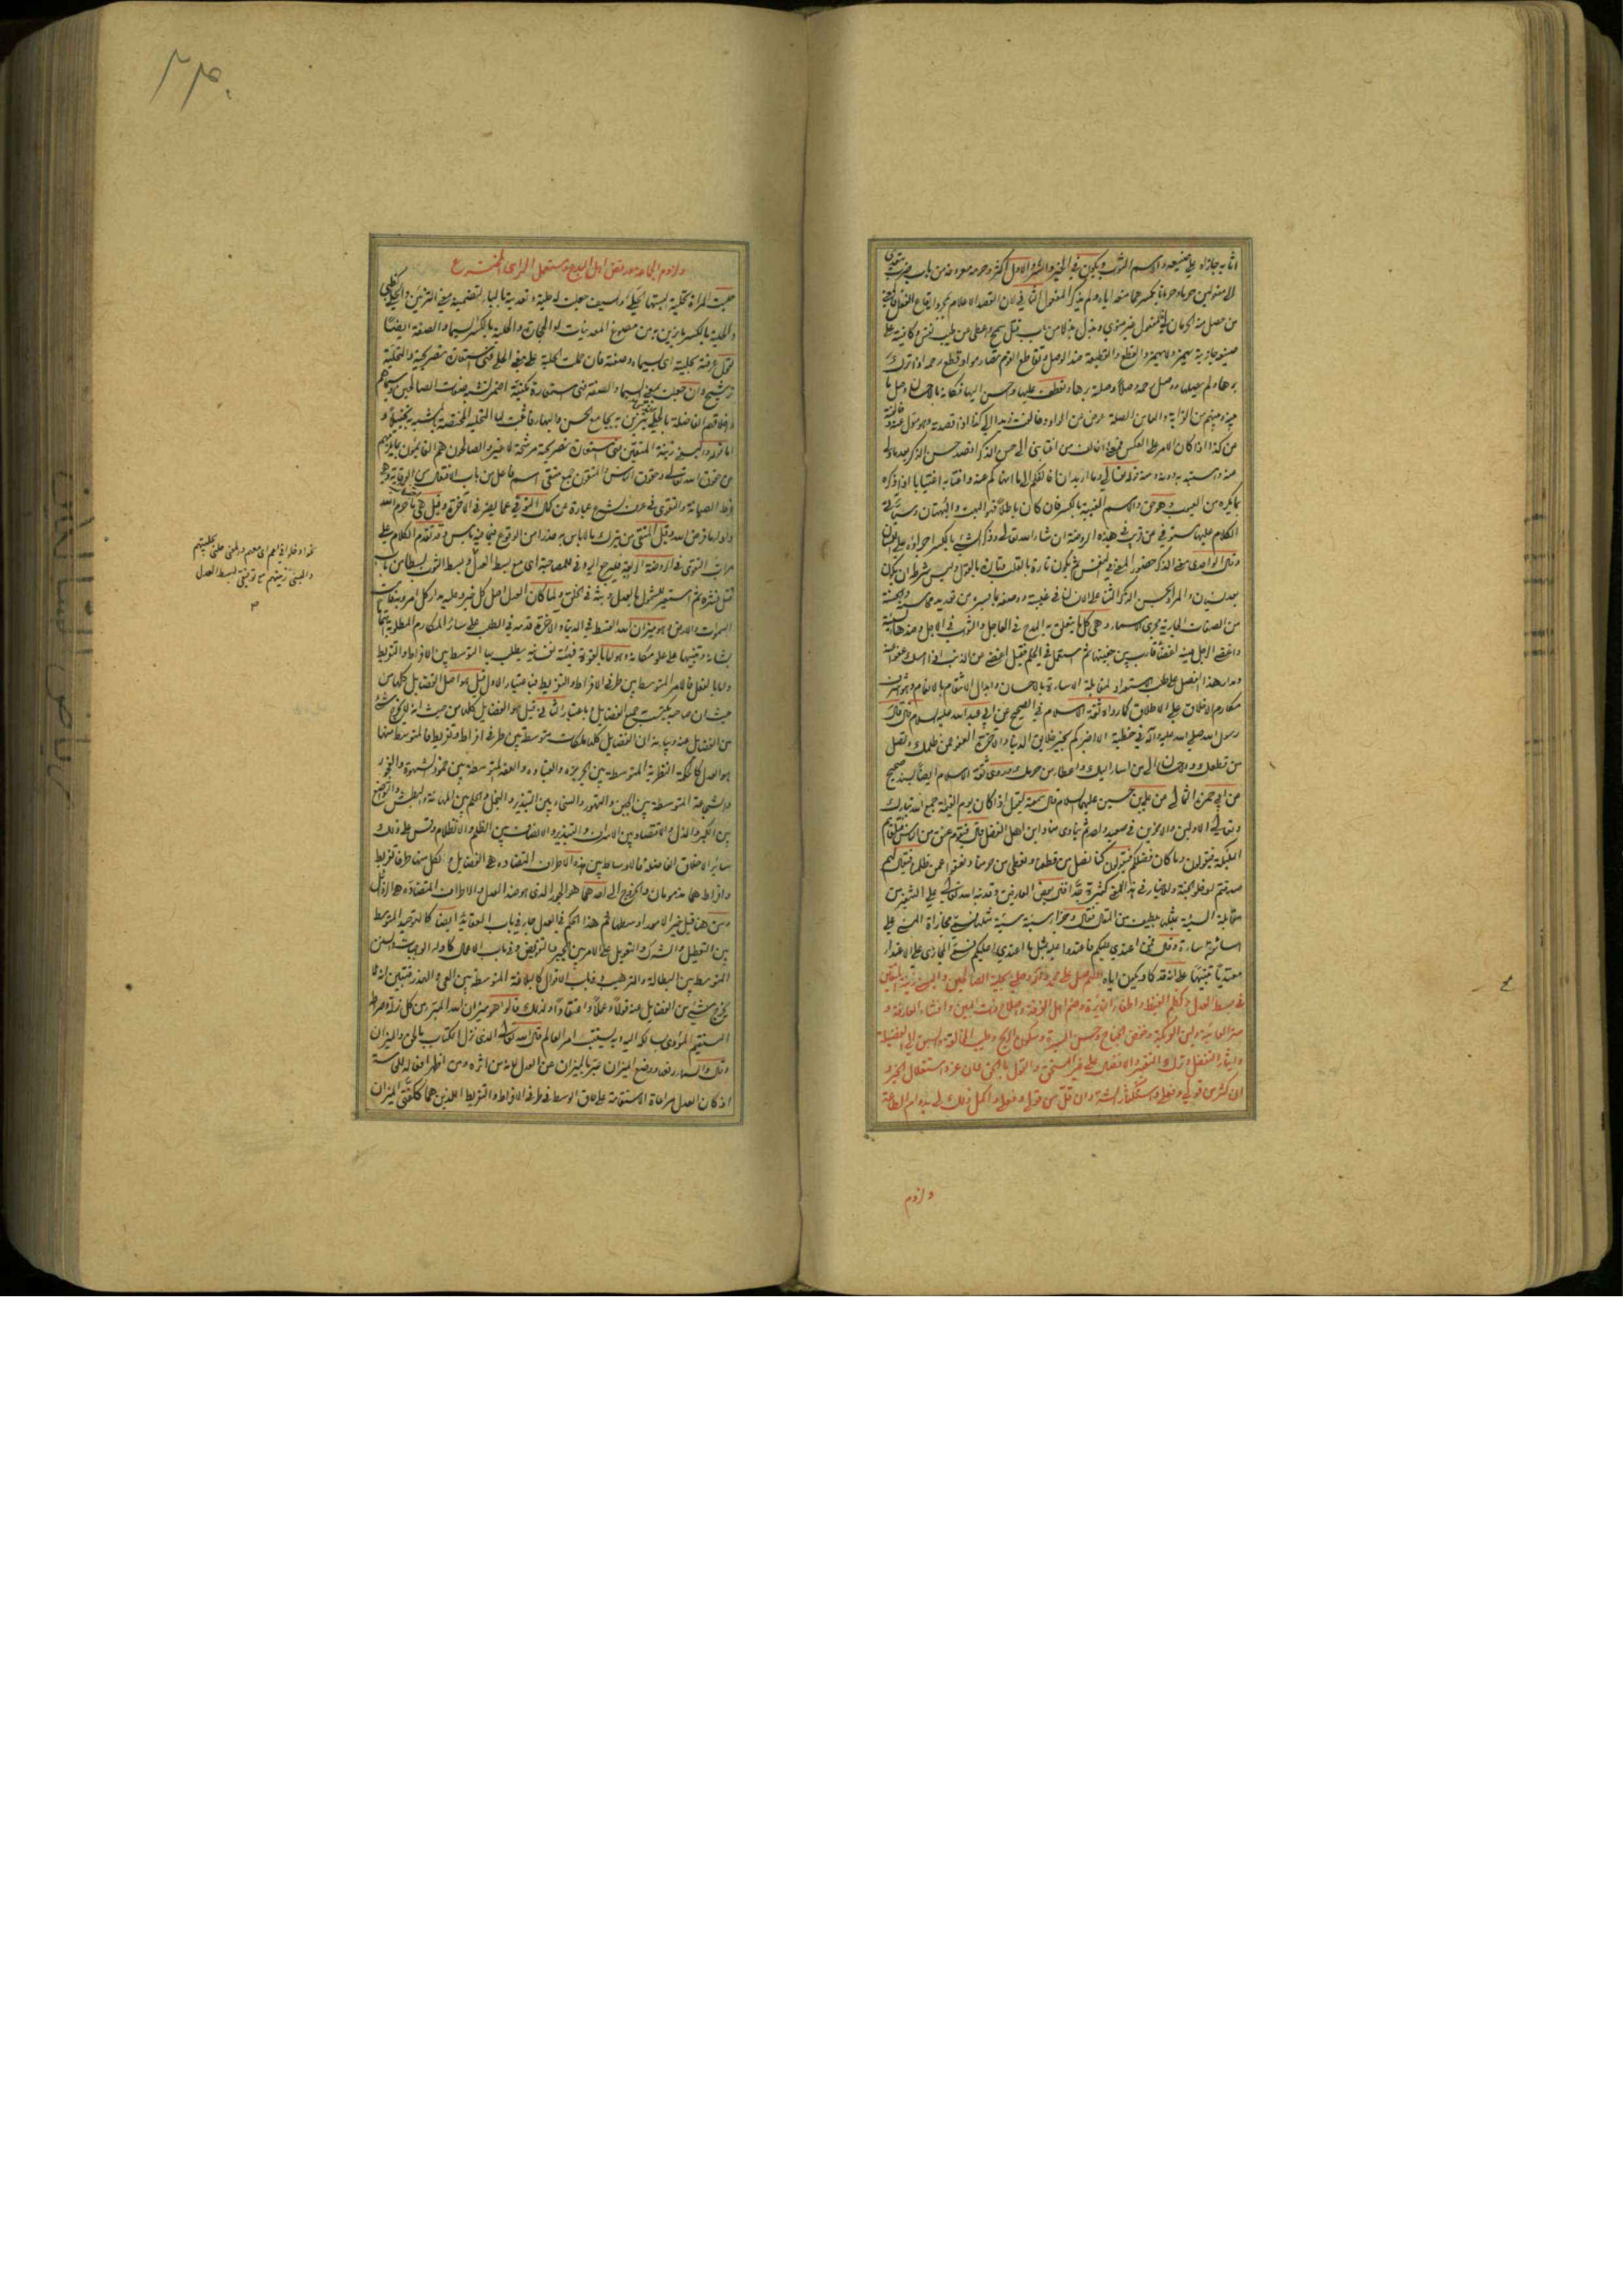 اثابه جازاه على صنيعه والاسم الثواب ويكون في الخير والشر والاول اكثر وحرمه معروفه من باب ضرب يتعدى
الى مفعولين حرما وحرمانا بكسرهما منعه اياه ولم يذكر المفعول الثاني لان القصد الاعلام بمجرد ايقاع الفعل
من حصل منه الحرمان فالمفعول غير منوي وبذل بذلا من باب قتل سمح واعطى عن طيب نفس وكافيته على
صنيعه جازيته يهمز ولا يهمز والقطع والقطيعة ضد الوصل وتقاطع القوم تصارموا وقطع رحمه اذا ترك
برها ولم يصلها ووصل رحمه وصلا وصلة برها وتعطف عليها واحسن اليها فكانه بالاحسان وصل ما
بينه وبينهم من القرابة والهاء في الصلة عوض عن الواو وخالفت زيدا الى كذا اذا قصدته وهو مول عنه
عن كذا اذا كان الامر على العكس فمعنى اخالف من اغتابني الى حسن الذكر اقصد حسن الذكر بعد ما ولى
عنه واستبد به دونه ومنه قوله تعالى وما اريد ان اخالفكم الى ما انهاكم عنه واغتابه اغتيابا اذا ذكره
بما يكره من العيوب وهو حق والاسم الغيبة بالكسر فان كان باطلا فهو البهت والبهتان وسياتي
الكلام عليها مستوفى عن قريب في هذه الروضة ان شاء الله تعالى وذكر الشيء بالكسر اجراؤه على اللسان
وقال الواحدي معنى الذكر حضور المعنى في النفس ثم يكون تارة بالقلب وتارة بالقول وليس شرطه ان يكون
بعد نسيان والمراد بحسن الذكر الثناء على الانسان في غيبته ووصفه بما يسره من تعديد محاسنه والحسنة
من الصفات الجارية مجرى الاسماء وهي كل ما يتعلق به المدح في العاجل والثواب في الآجل وضدها السيئة
واغضى الرجل عينه اغضاء قارب بين جفنيها ثم استعمل في الحلم فقيل اغضى عن الذنب اذا امسك عفوا عنه
ومدار هذا الفصل على طلب الاستعداد لمقابلة الاساءة بالاحسان وابدال الانتقام بالانعام وهو اشرف
مكارم الاخلاق على الاطلاق كما رواه ثقة الاسلام في الصحيح عن ابي عبد الله عليه السلام قال قال
رسول الله صلى الله عليه وآله في خطبته الا اخبركم بخير خلايق الدنيا والآخرة العفو عمن ظلمك وتصل
من قطعك والاحسان الى من اساء اليك واعطاء من حرمك وروى ثقة الاسلام ايضا بسند صحيح
عن ابي حمزة الثمالي عن علي بن الحسين عليهما السلام قال سمعته يقول اذا كان يوم القيمة جمع الله تبارك
وتعالى الاولين والآخرين في صعيد واحد ثم ينادي مناد اين اهل الفضل قال فيقوم عنق من الناس فتلقاهم
الملئكة فيقولون وما كان فضلكم فيقولون كنا نصل من قطعنا ونعطي من حرمنا ونعفو عمن ظلمنا فيقال لهم
صدقتم ادخلوا الجنة والاخبار في هذا المعنى كثيرة جدا قال بعض العارفين وقد نبه الله تعالى على التحذير من
مقابلة السيئة بمثلها بلطيف من المقال فقال وجزاء سيئة سيئة مثلها فسمى مجازاة المسيء على
اساءته اساءة وقال فمن اعتدى عليكم فاعتدوا عليه بمثل ما اعتدى عليكم فسمى المجازي على الاعتداء
معتديا تنبيها على انه قد كاد يكون اياه اللهم صل على محمد وآله وحلني بحلية الصالحين والبسني زينة المتقين
في بسط العدل وكظم الغيظ واطفاء النايرة وضم اهل الفرقة واصلاح ذات البين وافشاء العارفة و
ستر العائبة ولين العريكة وخفض الجناح وحسن السيرة وسكون الريح وطيب المخالقة والسبق الى الفضيلة
وايثار التفضل وترك التعيير والافضال على غير المستحق والقول بالحق وان عز واستقلال الخير و
ان كثر من قولي وفعلي واستكثار الشر وان قل من قولي وفعلي واكمل ذلك لي بدوام الطاعة
ولزوم
ولزوم الجماعة ورفض اهل البدع ومستعمل الراى المخترع
حليت المراة تحلية البستها الحلي والسيف جعلت له حلية وتعديته بالباء لتضمينه معنى التزيين والحلي
والحلية بالكسر ما يزين به من مصوغ المعدنيات او الحجارة والحلية بالكسر السيماء والصفة ايضا
تقول عرفته بحليته اى بسيماه وصفته فان حملت الحلية على معنى الحلي فهي استعارة تصريحية والتحلية
ترشيح وان جعلت بمعنى السيماء والصفة فهي استعارة مكنية اضمر تشبيه صفات الصالحين وسيماهم
واخلاقهم الفاضلة بالحلي يتزين به بجامع الحسن والبهاء فاثبت لها التحلية المختصة بالمشبه به تخييلا و
اما قوله والبسني زينة المتقين فهي استعارة تصريحية مرشحة لا غير والصالحون هم القائمون بما يلزمهم
من حقوق الله تعالى وحقوق الناس والمتقون جمع متقي اسم فاعل من باب الافتعال من الوقاية وهي
فرط الصيانة والتقوى في عرف الشرع عبارة عن كمال التوقي عما يضر في الآخرة وقيل هي ترك ما حرم الله
واداء ما فرض الله وقيل المتقي من يترك ما لا باس به حذرا من الوقوع فيما فيه باس وقد تقدم الكلام على
مراتب التقوى في الروضة الرابعة فليرجع اليه وفي للمصاحبة اى مع بسط العدل وبسط الثوب بسطا من باب
قتل نشره ثم استعير للشمول بالعدل وبثه في الخلق ولما كان العدل اصل كل خير وعليه مدار كل امر وبه قامت
السموات والارض وهو ميزان الله القسط في الدنيا والآخرة قدمه في الطلب على سائر المكارم المطلوبة
بشانه وتنبيها على علو مكانه وهو اما بالقوة فهيئة نفسانية يطلب بها التوسط بين الافراط والتفريط
واما بالفعل فالامر المتوسط بين طرفي الافراط والتفريط فباعتبار الاول قيل هو اصل الفضايل كلها من
حيث ان صاحبه يكتسب جميع الفضايل وباعتبار الثاني قيل هو الفضايل كلها من حيث انه لا يخرج شيء
من الفضايل عنه وبيانه ان الفضايل كلها ملكات متوسطة بين طرفي افراط وتفريط فالمتوسط منها
هو العدل كالحكمة النظرية المتوسطة بين الجربزة والغباوة والعفة المتوسطة بين خمود الشهوة والفجور
والشجاعة المتوسطة بين الجبن والتهور والسخاء بين التبذير والبخل والحلم بين المهانة والبطش والتواضع
بين الكبر والذل والاقتصاد بين الاسراف والتبذير والانصاف بين الظلم والانظلام وقس على ذلك
سائر الاخلاق الفاضلة فالاوساط بين هذه الاطراف المتضادة هي الفضايل ولكل منها طرفا تفريط
وافراط هما مذمومان والخروج الى احدهما هو الجور الذي هو ضد العدل والاطراف المتضادة هي الرذايل
ومن هنا قيل خير الامور اوسطها ثم هذا الحكم في العدل جار في باب العقائد ايضا كالتوحيد المتوسط
بين التعطيل والشرك والتعويل على الامر بين الجبر والتفويض وفي باب الاعمال كاداء الواجبات والسنن
المتوسط بين البطالة والترهب وفي باب الاقوال كالبلاغة المتوسطة بين العي والهذر فتبين انه لا
يخرج شيء من الفضايل عنه قولا وعملا واعتقادا ولذلك قالوا هو ميزان الله المبرء من كل زلة وصراطه
المستقيم المؤدي سالكه اليه وبه يستتب امر العالم قال الله تعالى الذي نزل الكتاب بالحق والميزان
وقال والسماء رفعها ووضع الميزان عبر بالميزان عن العدل لانه من اثره ومن اظهر افعاله للحاسة
اذ كان العدل مراعاة الاستقامة على حاق الوسط في طرفي الافراط والتفريط اللذين هما ككفتي الميزان